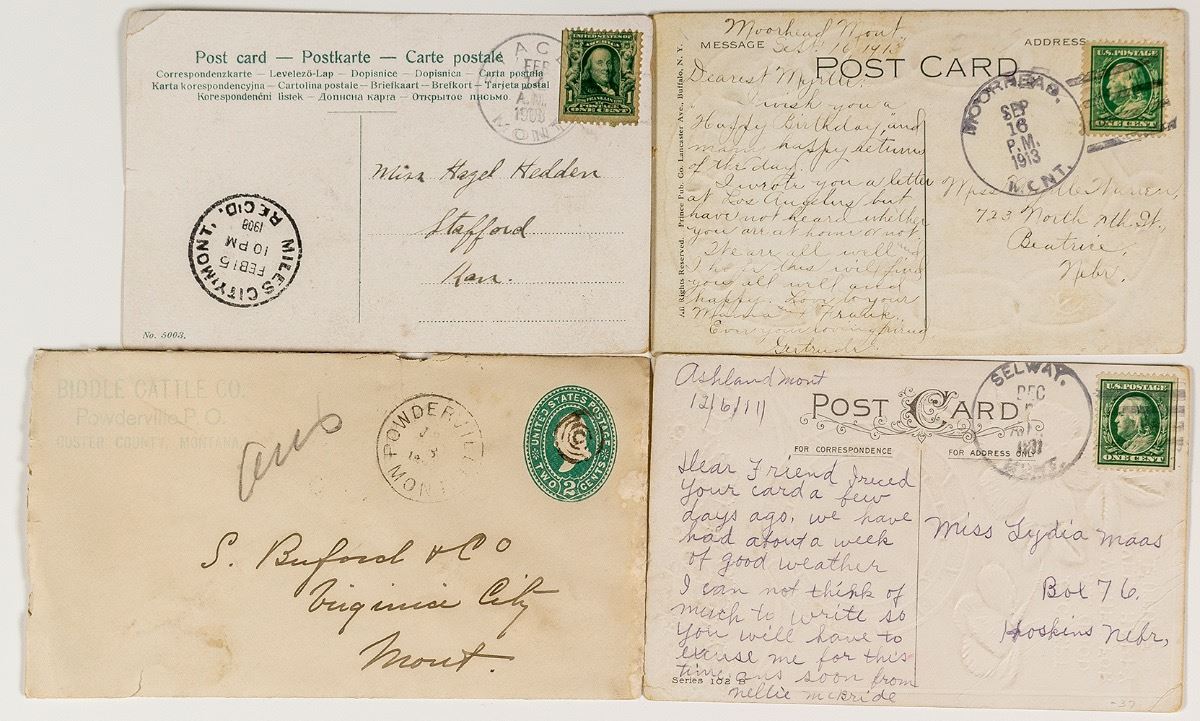 Post card — Postkarte — Carte postale
Correspondenzkarte — Levelező-Lap — Dopisnice — Dopisnica — Carta postala
Karta korespondencyjna — Cartolina postale — Briefkaart — Brefkort — Tarjeta postal
Korespondenční listek — Дописна карта — Открытое письмо
FEB
A.M.
1908
MONT
UNITED STATES OF AMERICA
POSTAGE
ONE CENT
Miss Hazel Hedden
Stafford
Kan.
MILES CITY, MONT. REC'D.
FEB 15
10 PM
1908
No. 5003.
Moorhead Mont
Sept. 16, 1913
MESSAGE
ADDRESS
POST CARD
Dearest Myrtle:
I wish you a
Happy Birthday, and
many happy returns
of the day.
I wrote you a letter
at Los Angeles but
have not heard whether
you are at home or not.
We are all well &
hope this will find
you all well and
happy. Love to your
Mama & Frank.
Ever your loving friend
Gertrude.
All Rights Reserved. Prince Pub. Co. Lancaster Ave., Buffalo, N. Y.
MOORHEAD, MONT.
SEP
16
P.M.
1913
U.S. POSTAGE
ONE CENT
Miss Warren,
723 North St.,
Beatrice,
Nebr.
BIDDLE CATTLE CO.
Powderville P. O.
CUSTER COUNTY, MONTANA
ans
POWDERVILLE MONT
UNITED STATES POSTAGE
TWO 2 CENTS
S. Buford & Co
Virginia City
Mont.
Ashland Mont
12/6/11
POST CARD
FOR CORRESPONDENCE
FOR ADDRESS ONLY
SELWAY, MONT.
DEC
1911
U.S. POSTAGE
ONE CENT
Dear Friend I rec'd
Your card a few
days ago. we have
had about a week
of good weather
I can not think of
much to write so
You will have to
excuse me for this
time. ans soon from
Nellie McBride
Series 102 B
Miss Lydia Maas
Box 76.
Hoskins Nebr,
-37